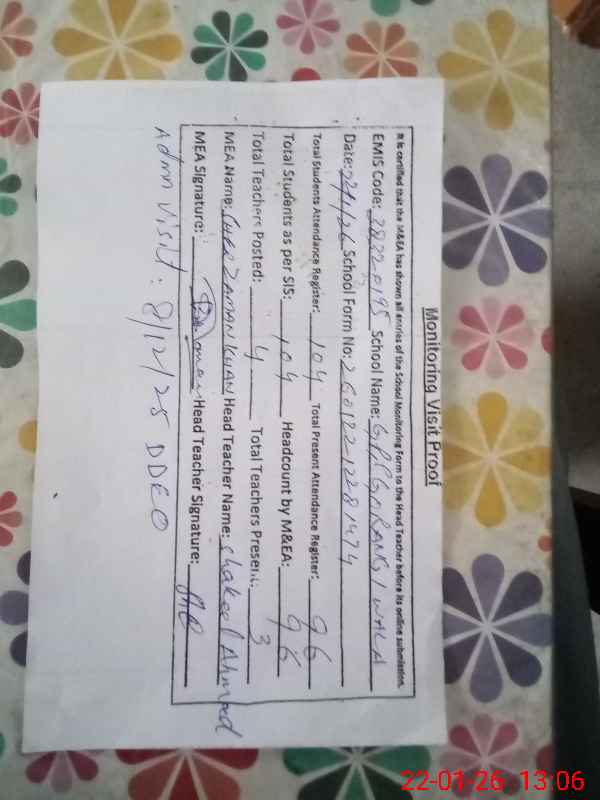 Monitoring Visit Proof
It is certified that the M&EA has shown all entries of the School Monitoring Form to the Head Teacher before its online submission.
EMIS Code: 38220195 School Name: GPS
Date: 22/1/26 School Form No: 26012212281474
Total Students Attendance Register: 104 Total Present Attendance Register: 96
Total Students as per SIS: 104 Headcount by M&EA: 96
Total Teachers Posted: 4 Total Teachers Present: 3
MEA Name: SHER ZAMAN KHAN Head Teacher Name: Shakeel Ahmad
MEA Signature: Head Teacher Signature:
Admn Visit: 8/12/25 DDEO
22-01-26 13:06